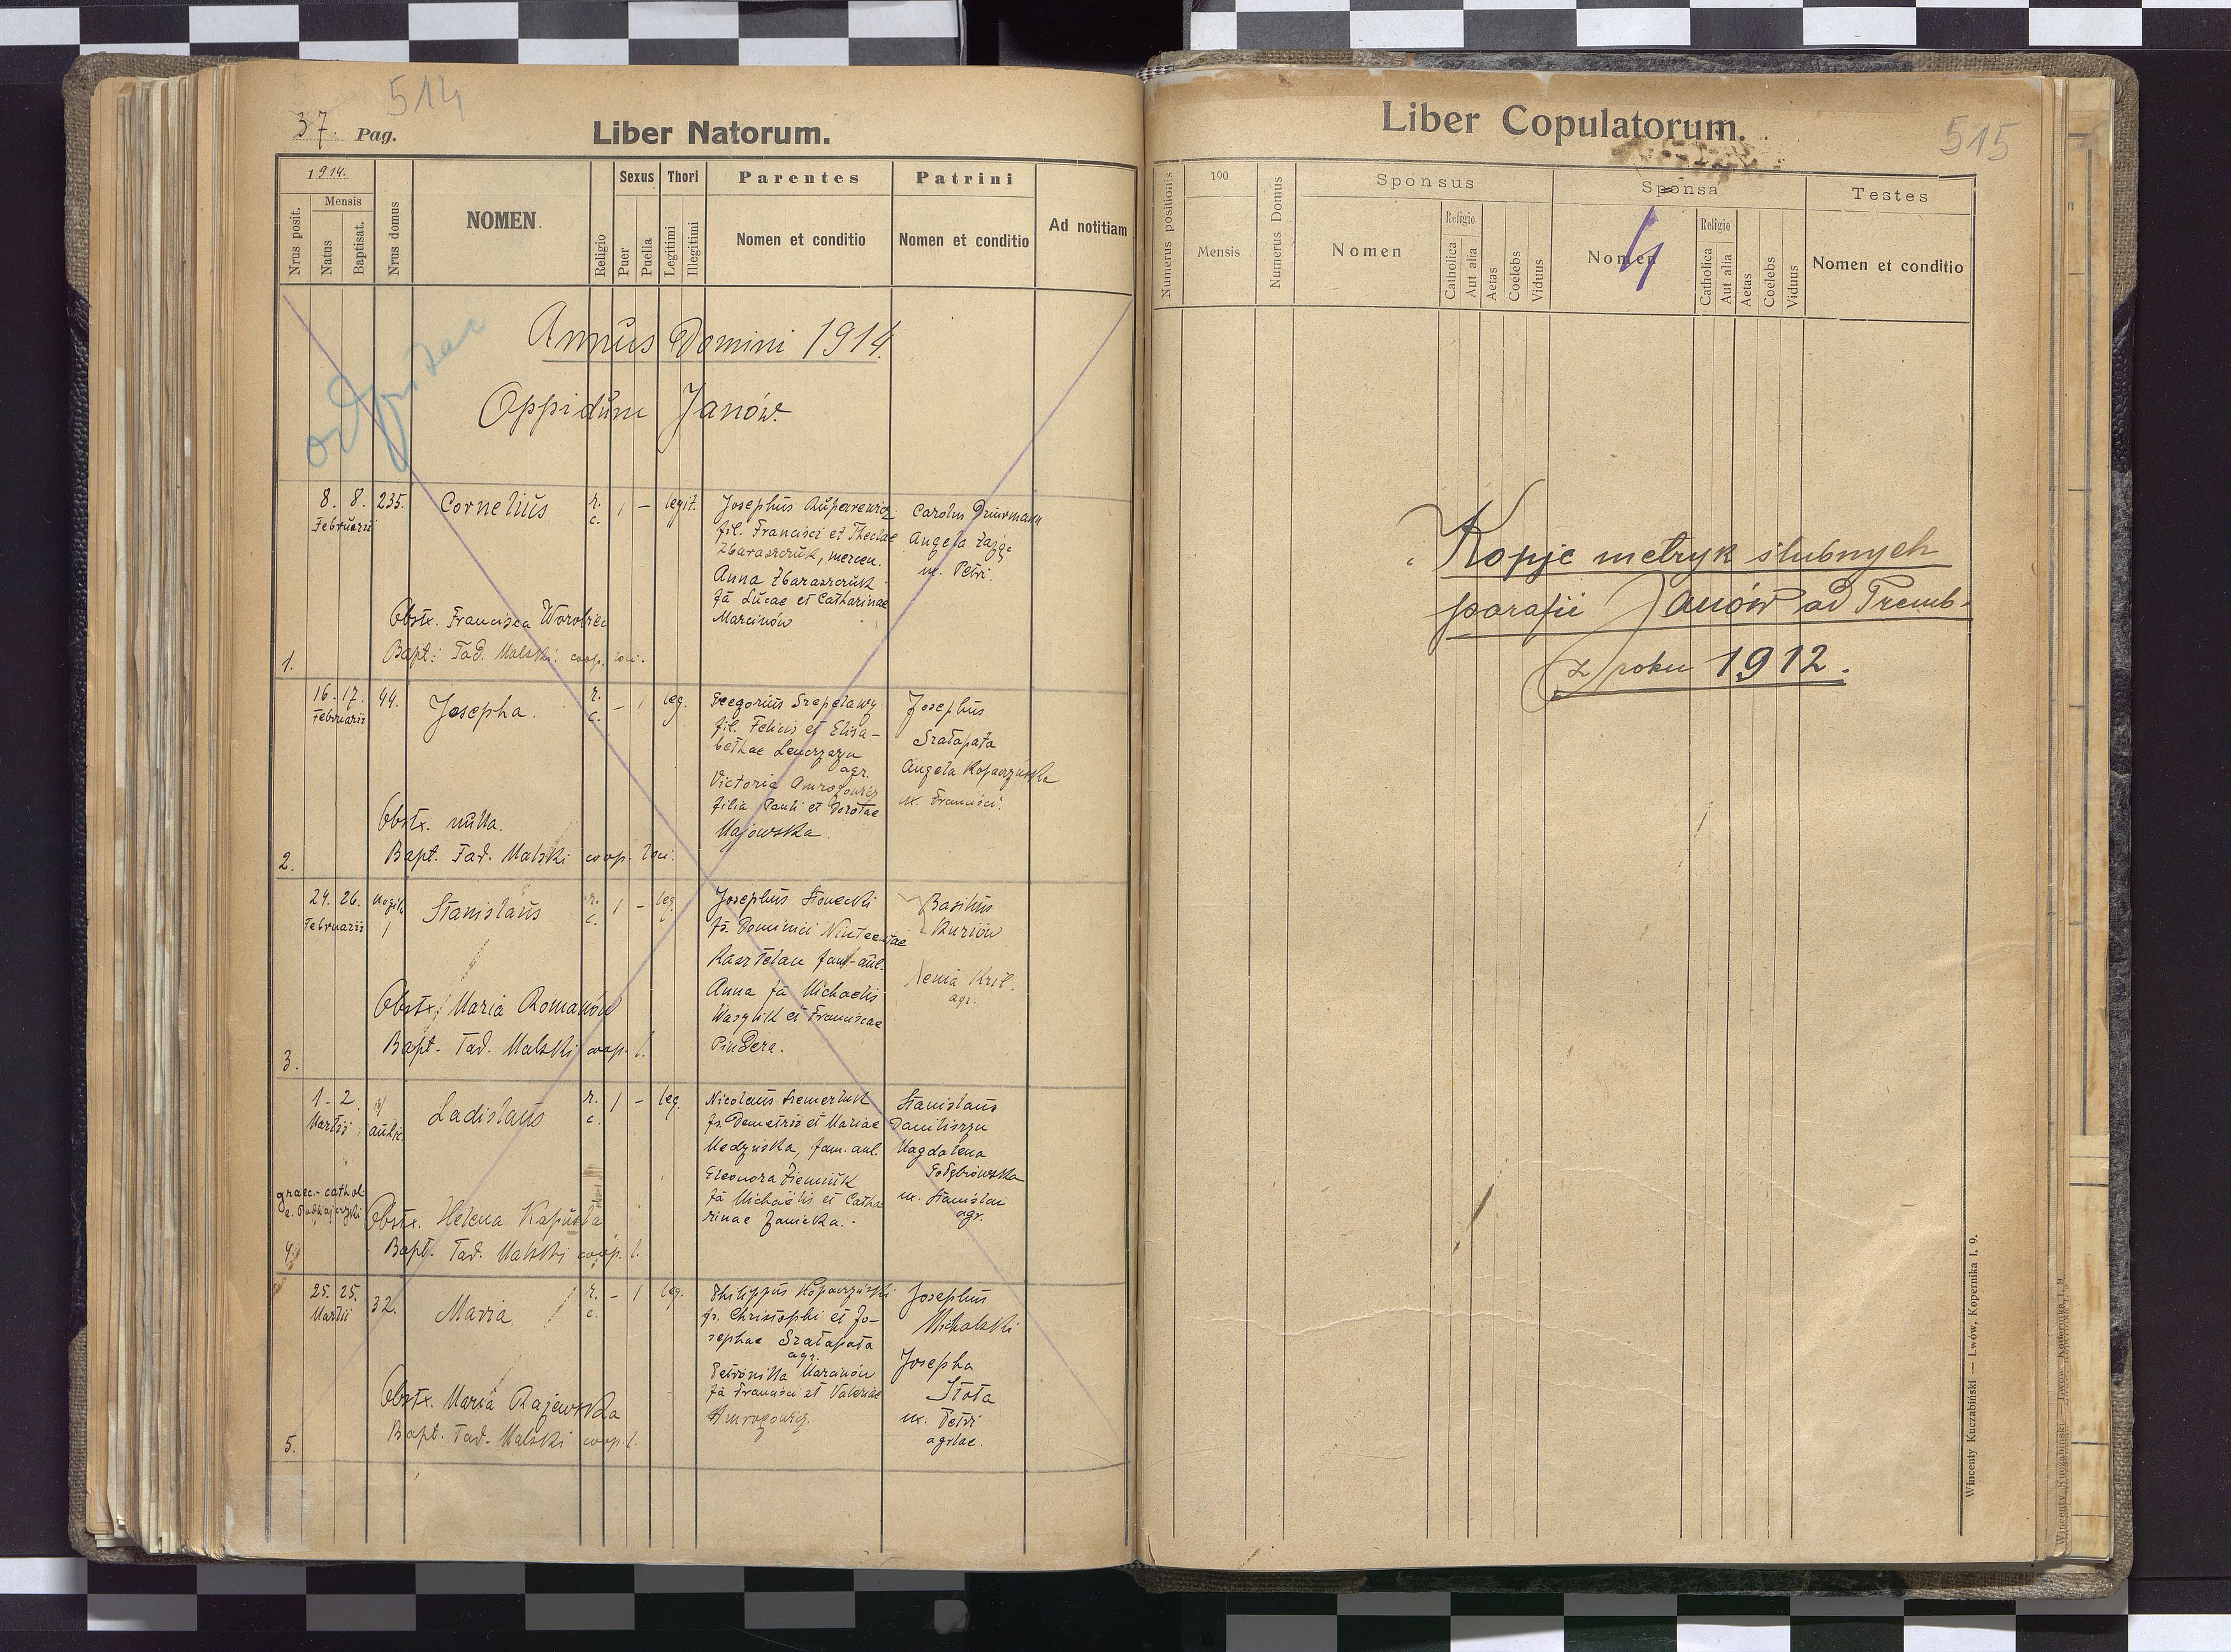 514
37. Pag.
Liber Natorum.
1914.
Mensis
Nrus posit.
Natus
Baptisat.
Nrus domus
NOMEN.
Religio
Sexus
Puer
Puella
Thori
Legitimi
Illegitimi
Parentes
Nomen et conditio
Patrini
Nomen et conditio
Ad notitiam
Annus Domini 1914.
Oppidum Janów.
1.
8. 8. 235.
Februarii
Cornelius
r. c. 1 – legit.
Josephus
fil. Francisci et Theclae
Zbaraszczuk, mercen.
Anna Zbaraszczuk
fa Lucae et Catharinae
Marcinów
Carolus
Angela Zając
ux. Petri.
Obstx. Francisca Worobiec
Bapt: Tad. Malski coop. loci.
2.
16. 17. 44.
Februarii
Josepha.
r. c. – 1 leg.
Gregorius Szepelawy
fil. Felicis et Elisa-
bethae
agr.
Victoria Amrogowicz
filia Pauli et Dorotae
Majowska.
Josephus
Szałapata
Angela Koparzyńska
ux. Francisci.
Obstx. nulla.
Bapt. Tad. Malski coop. loci.
3.
24. 26.
Februarii
1
Stanislaus
r. c. 1 – leg.
Josephus Słonecki
fs. Dominici
Kasztelan fam. aul.
Anna fa Michaelis
Wasylik et Franciscae
Pindera.
Basilius
Kuriów
Xenia Kril.
agr.
Obstx. Maria Romanów
Bapt. Tad. Malski coop. l.
4.
1. 2.
Martii
aulic.
Ladislaus
r. c. 1 – leg.
Nicolaus
fs. Demetrii et Mariae
Medyńska, fam. aul.
Eleonora Ziemnik
fa Michaëlis et Catha-
rinae Janicka.
Stanislaus
Daniliszyn
Magdalena
Gołębiowska
ux. Stanislai
agr.
graec.-cathol.
Obstx. Helena Kapusta
Bapt. Tad. Malski coop. l.
5.
25. 25. 32.
Martii
Maria
r. c. – 1 leg.
Philippus Koparzyński
fs. Christophi et Jo-
sephae Szałapata
agr.
Petronilla Marcinów
fa Francisci et Valeriae
Amrogowicz.
Josephus
Michalski
Josepha
Słota
ux. Petri
agrlae.
Obstx. Maria Rajewska
Bapt. Tad. Malski coop. l.
Liber Copulatorum.
515
Numerus positionis
190
Mensis
Numerus Domus
Sponsus
Nomen
Religio
Catholica
Aut alia
Aetas
Coelebs
Viduus
Sponsa
Nomen
4
Religio
Catholica
Aut alia
Aetas
Coelebs
Viduus
Testes
Nomen et conditio
Kopje metryk ślubnych
parafii Janów ad Tremb-
z roku 1912.
Wincenty Kuczabiński — Lwów, Kopernika l. 9.